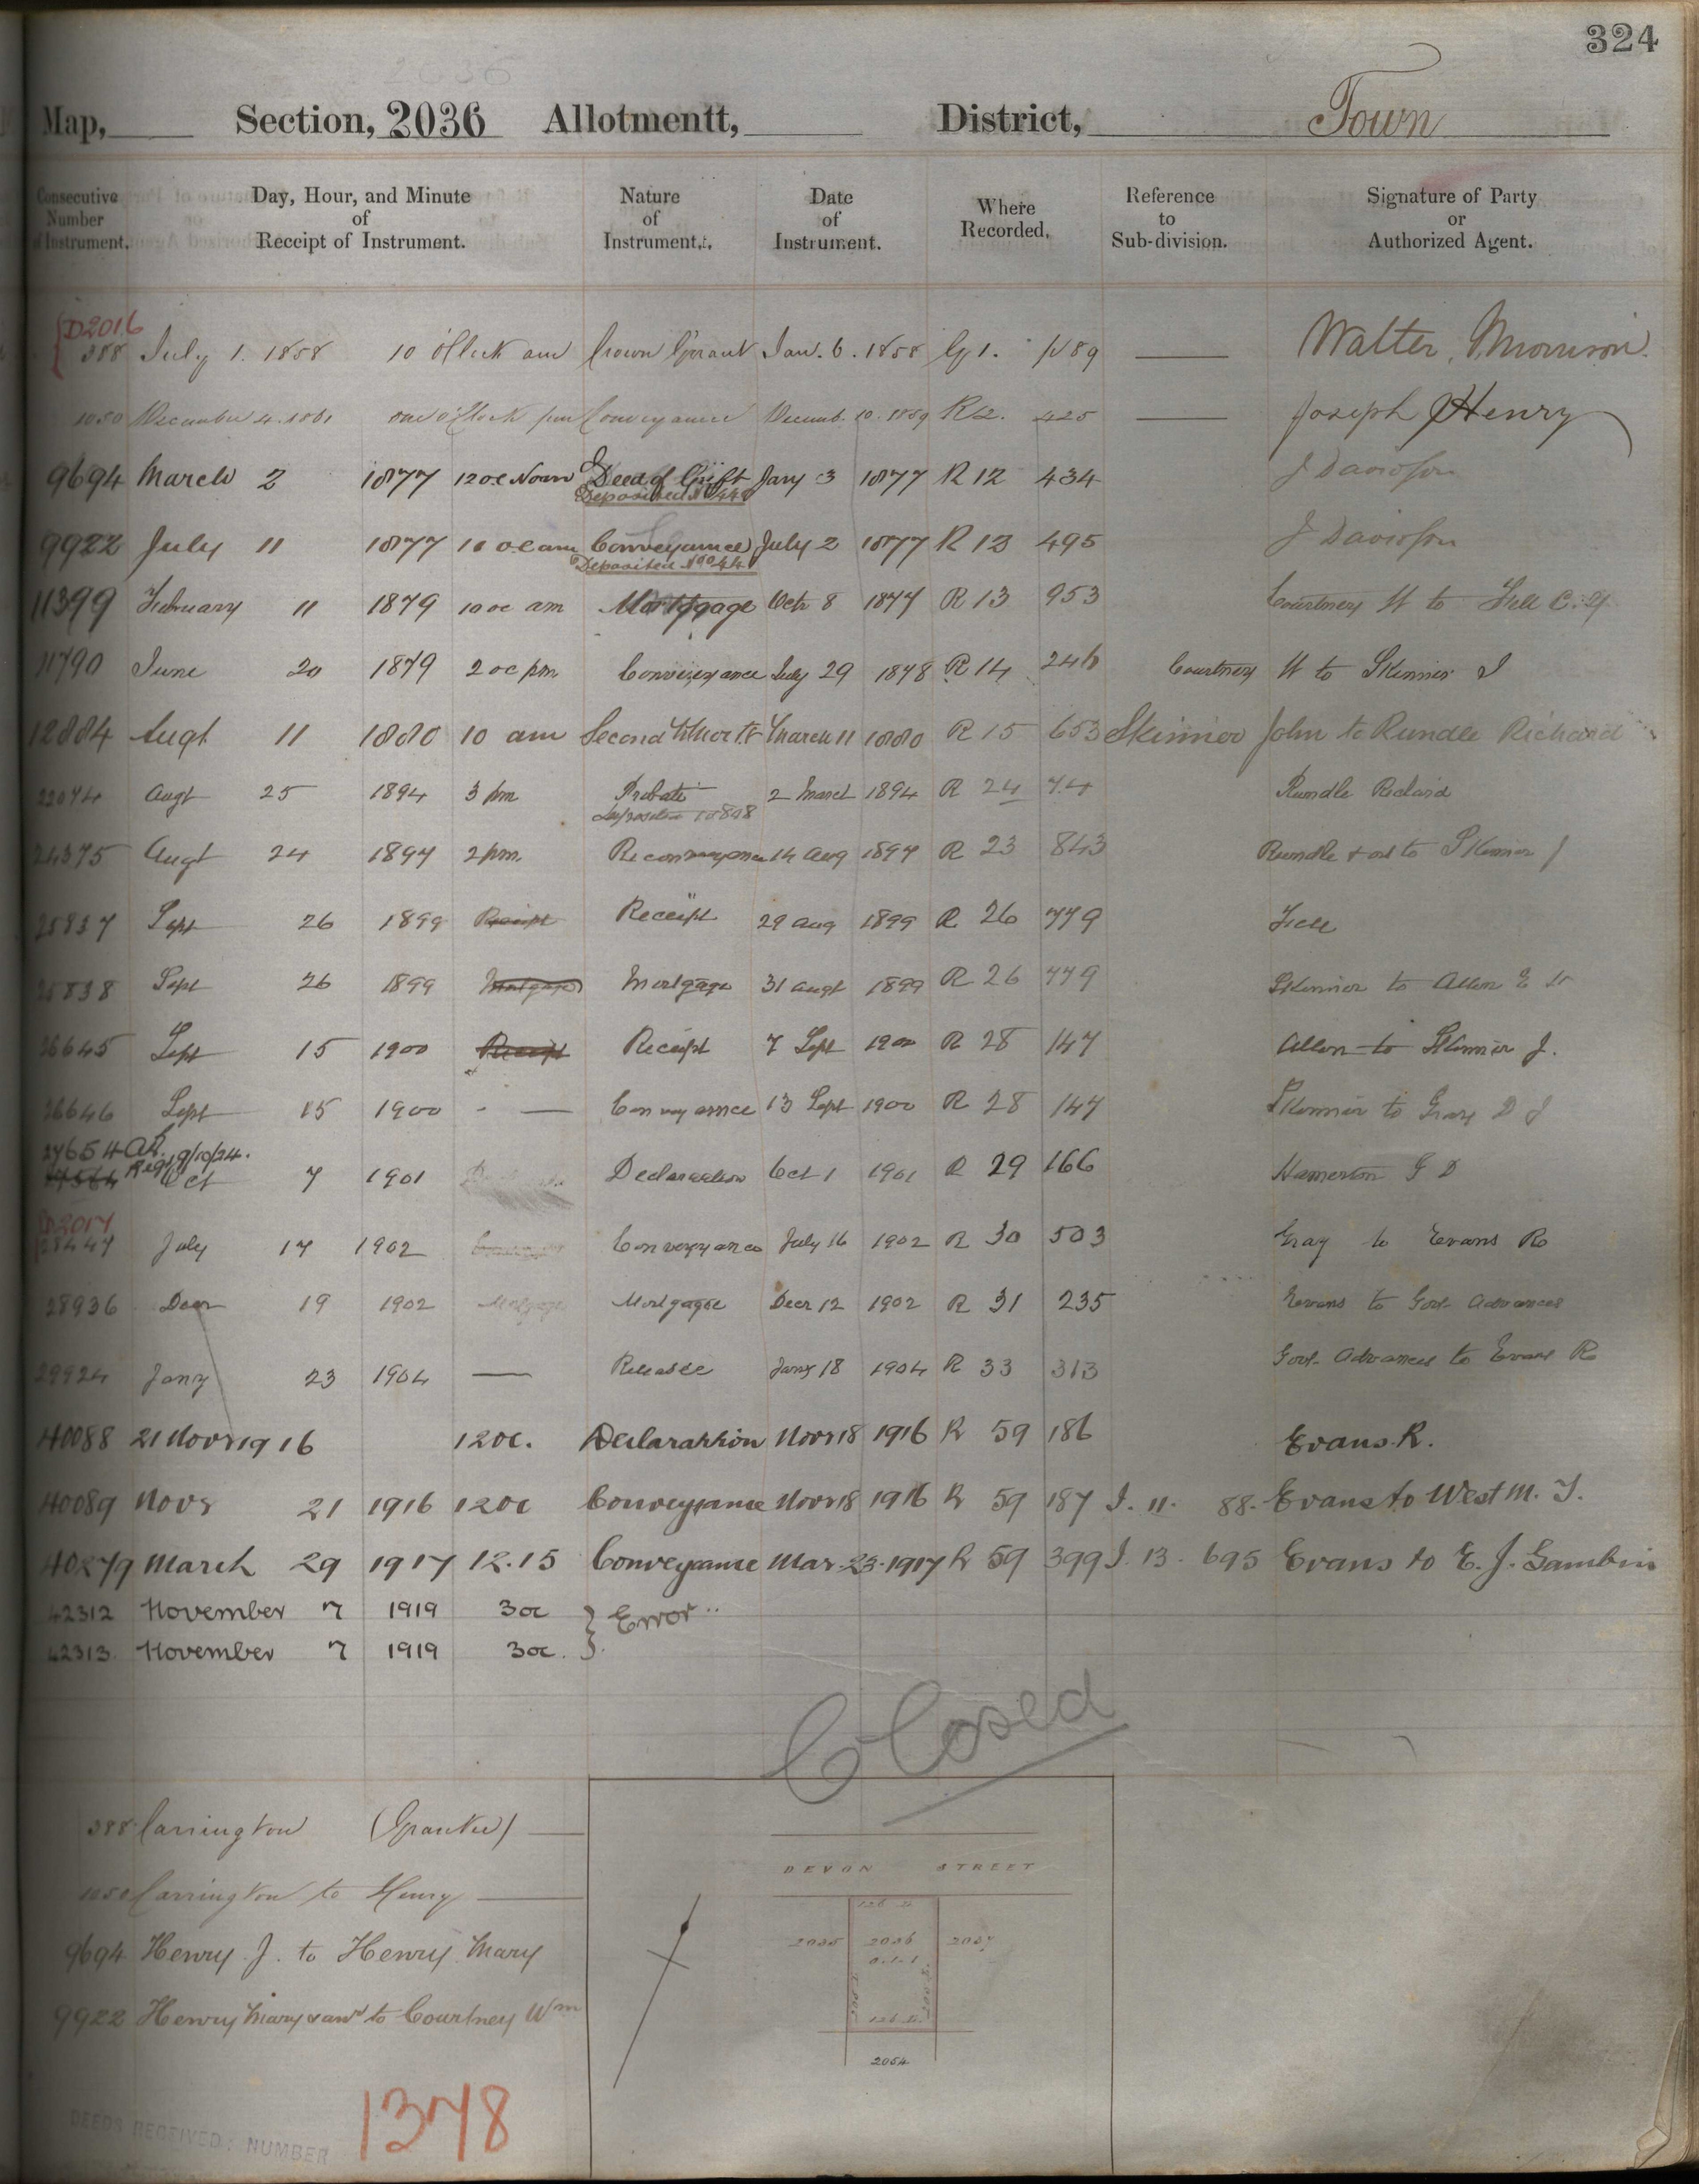 324
Map, Section, 2036 Allotmentt, District, Town
Consecutive Number of Instrument. Day, Hour, and Minute of Receipt of Instrument. Nature of Instrument. Date of Instrument. Where Recorded. Reference to Sub-division. Signature of Party or Authorized Agent.
D2016
388 July 1. 1858 10 o'Clock am Crown Grant Jan. 6. 1858 G 1. p 89 Walter Morrison.
1050 December 4. 1861 one o'Clock pm Conveyance Decemb. 10. 1859 R 2. 425 Joseph Henry
9694 March 2 1877 12 oc Noon Deed of Gift Jany 3 1877 R 12 434 J Davidson
Deposited No 944
9922 July 11 1877 10 oc am Conveyance July 2 1877 R 13 495 J Davidson
Deposited No 944
11399 February 11 1879 10 oc am Mortgage Octr 8 1877 R 13 953 Courtney W to
11790 June 20 1879 2 oc pm Conveyance July 29 1878 R 14 246 Courtney W to Skinner J
12884 Augt 11 1880 10 am Second Mortge March 11 1880 R 15 653 Skinner John to Rundle Richard
22074 Augt 25 1894 3 pm Probate 2 March 1894 R 24 74 Rundle Richard
24375 Augt 24 1897 2 pm. Reconveyance 14 Aug 1897 R 23 843 Rundle & ors to Skinner J
25837 Sept 26 1899 Receipt Receipt 29 Aug 1899 R 26 779
25838 Sept 26 1899 Mortgage Mortgage 31 Augt 1899 R 26 779 Skinner to Allen E
26645 Sept 15 1900 Receipt Receipt 7 Sept 1900 R 28 147 Allen to Skinner J.
26646 Sept 15 1900 - — Conveyance 13 Sept 1900 R 28 147 Skinner to Gray D J
27654 A.R. Regr 9/10/24.
27564 Oct 7 1901 Declaration Oct 1 1901 R 29 166 Hamerton G D
D2017
28447 July 17 1902 Conveyance July 16 1902 R 30 503 Gray to Evans R
28936 Decr 19 1902 Mortgage Mortgage Decr 12 1902 R 31 235 Evans to Govt Advances
29924 Jany 23 1904 — Release Jany 18 1904 R 33 313 Govt Advances to Evans R
40088 21 Novr 1916 12 oc. Declaration Novr 18 1916 R 59 186 Evans. R.
40089 Novr 21 1916 12 oc Conveyance Novr 18 1916 R 59 187 I. 11. 88. Evans to West M. J.
40279 March 29 1917 12.15 Conveyance Mar. 23. 1917 R 59 399 I. 13. 695 Evans to E. J. Gamlin
42312 November 7 1919 3 oc } Error
42313 November 7 1919 3 oc.
Closed
388 Carrington (Grantee)
1050 Carrington to Henry
9694 Henry. J. to Henry Mary
9922 Henry Mary & anr to Courtney Wm
DEVON STREET
2035 2036 2037
0.1.1
2054
1378
DEEDS RECEIVED: NUMBER